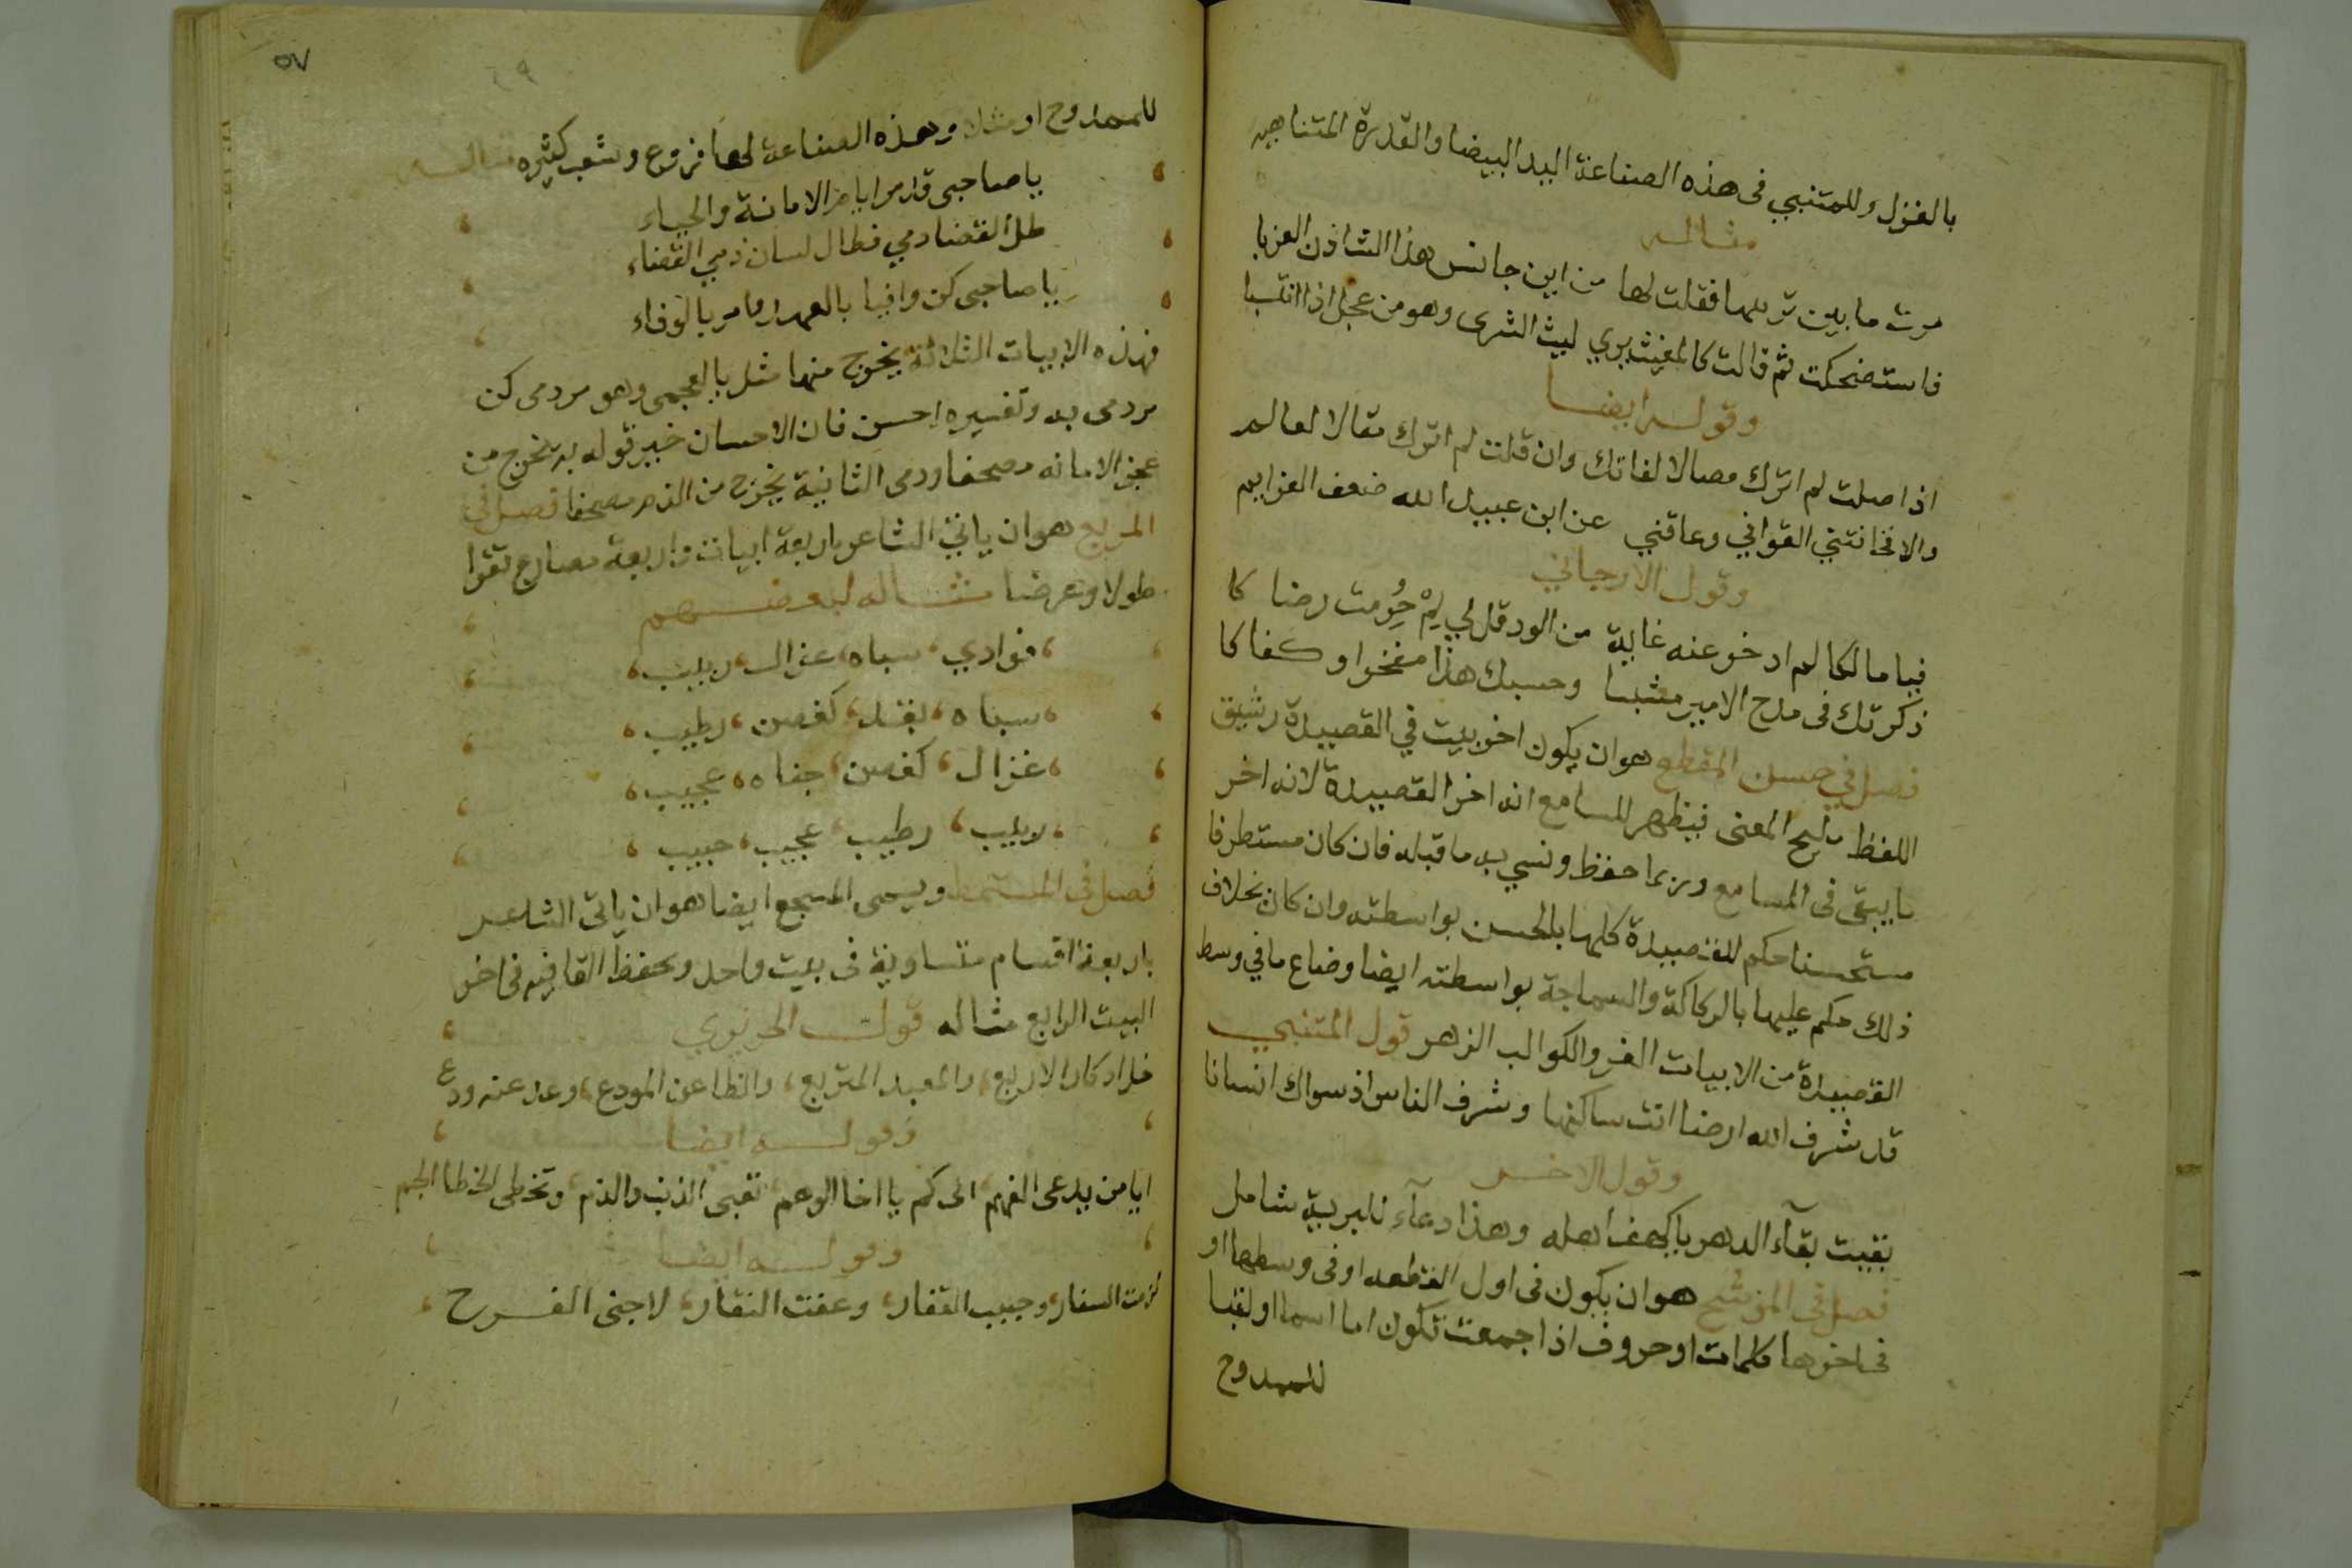 بالغزل وللمتنبي فى هذه الصناعة اليد البيضا والقدرة المتناهيه
مثاله
مرت ما بين تربيها فقلت لها من اين جانس هذا الشاذن العربا
فاستضحكت ثم قالت كالمغيث يري ليث الشرى وهو من عجل اذا انتسبا
وقوله ايضا
اذا صلت لم اترك مصالا لفاتك وان قلت لم اترك مقالا لعالم
والا فخانتني القوافي وعاقني عن ابن عبيد الله ضعف العزايم
وقول الارجاني
فيا مالكا لم ادخر عنه غاية من الود قل لي لِمْ حُرِمت رضا كا
ذكرتك فى مدح الامير مشببا وحسبك هذا مفخرا وكفاكا
فصل في حسن المقطع هو ان يكون اخر بيت في القصيدة رشيق
اللفظ مليح المعنى فيظهر للسامع انه اخر القصيدة لانه اخر
ما يبقى فى المسامع وربما حفظ ونسي به ما قبله فان كان مستطرفا
مستحسنا حكم للقصيدة كلها بالحسن بواسطته وان كان بخلاف
ذلك حكم عليها بالركاكة والسماجة بواسطته ايضا وضاع ما في وسط
القصيدة من الابيات الغر والكوالب الزهر قول المتنبي
قد شرف الله ارضا انت ساكنها وشرف الناس اذ سواك انسانا
وقول الاخر
بقيت بقآء الدهر يا كهف اهله وهذا دعآء للبرية شامل
فصل فى الموشح هو ان يكون فى اول القطعه او فى وسطها او
فى اخرها كلمات او حروف اذا جمعت تكون اما اسما او لقبا
للممدوح
٥٧
للممدوح او مثلا وهذه الصناعة لها فروع وشعب كثيره مثاله
يا صاحبى قد مر ايام الامانة والحياء
طل القضا دمي فطال لسان ذمي القضاء
يا صاحبى كن وافيا بالعهد وامر بالوفاء
فهذه الابيات الثلاثة يخرج منها مثل بالعجمى وهو مردمى كن
مردمى به وتفسيره احسن فان الاحسان خير قوله به تخرج من
عجز الامانه مصحفا ودمى الثانية يخرج من الذم مصحفا فصل في
المربع هو ان ياتي الشاعر باربعة ابيات واربعة مصارع تقرا
طولا وعرضا مثاله لبعضهم
فوادي، سباه، غزال، ربيب،
سباه، بقد، كغصن، رطيب،
غزال، كغصن، جناه، عجيب،
ربيب، رطيب، عجيب، حبيب،
فصل فى المستمط ويسمى المسجع ايضا هو ان ياتى الشاعر
باربعة اقسام متساوية فى بيت واحد ويحفظ القافيه فى اخر
البيت الرابع مثاله قول الحريري
خل ادكار الاربع، والمعهد المتربع، والظاعن المودع، وعد عنه ودع
وقوله ايضا
ايا من يدعى الفهم، الى كم يا اخا الوهم، تعبى الذنب والذم، وتخطى الخطا الجم
وقوله ايضا
لزمت السفار، وجبت القفار، وعفت النفار، لاجنى الفرح،